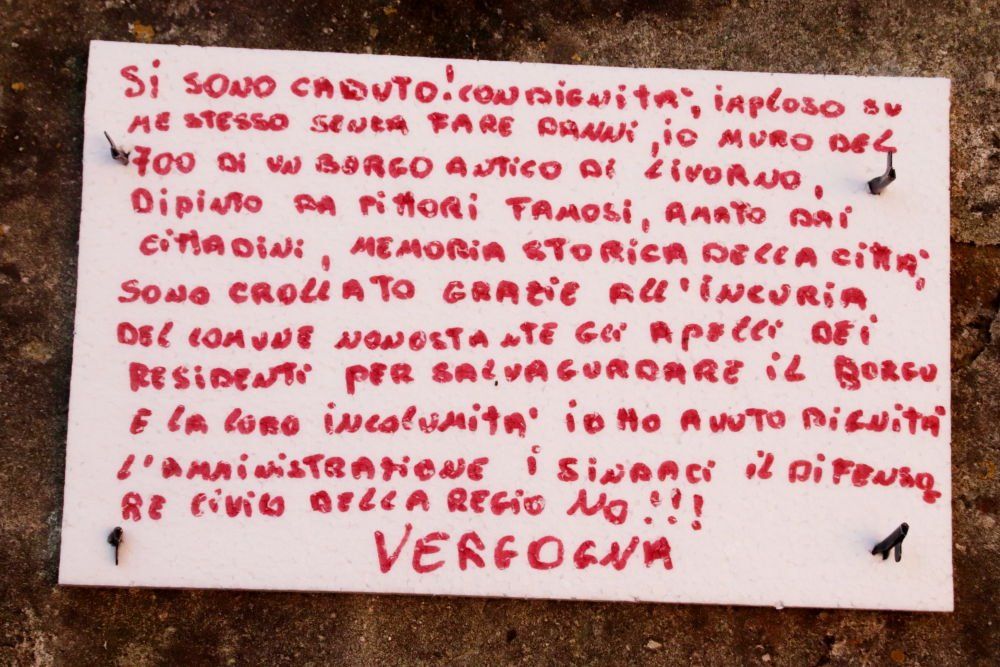 SI SONO CADUTO! CON DIGNITA', IMPLOSO SU
ME STESSO SENZA FARE DANNI, IO MURO DEL
700 DI UN BORGO ANTICO DI LIVORNO,
DIPINTO DA PITTORI FAMOSI, AMATO DAI
CITTADINI, MEMORIA STORICA DELLA CITTA',
SONO CROLLATO GRAZIE ALL'INCURIA
DEL COMUNE NONOSTANTE GLI APELLI DEI
RESIDENTI PER SALVAGURDARE IL BORGO
E LA LORO INCOLUMITA' IO HO AVUTO DIGNITA'
L'AMMINISTRAZIONE I SINDACI IL DIFENSO
RE CIVICO DELLA REGIO NO!!!
VERGOGNA